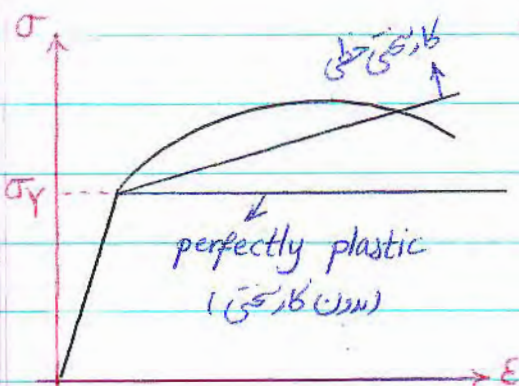 σ
کارسختی خطی
σY
perfectly plastic
(بدون کارسختی)
ε